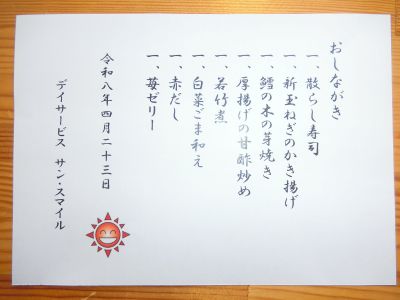 おしながき
一、散らし寿司
一、新玉ねぎのかき揚げ
一、鱈の木の芽焼き
一、厚揚げの甘酢炒め
一、若竹煮
一、白菜ごま和え
一、赤だし
一、苺ゼリー
令和八年四月二十三日
デイサービス サン・スマイル